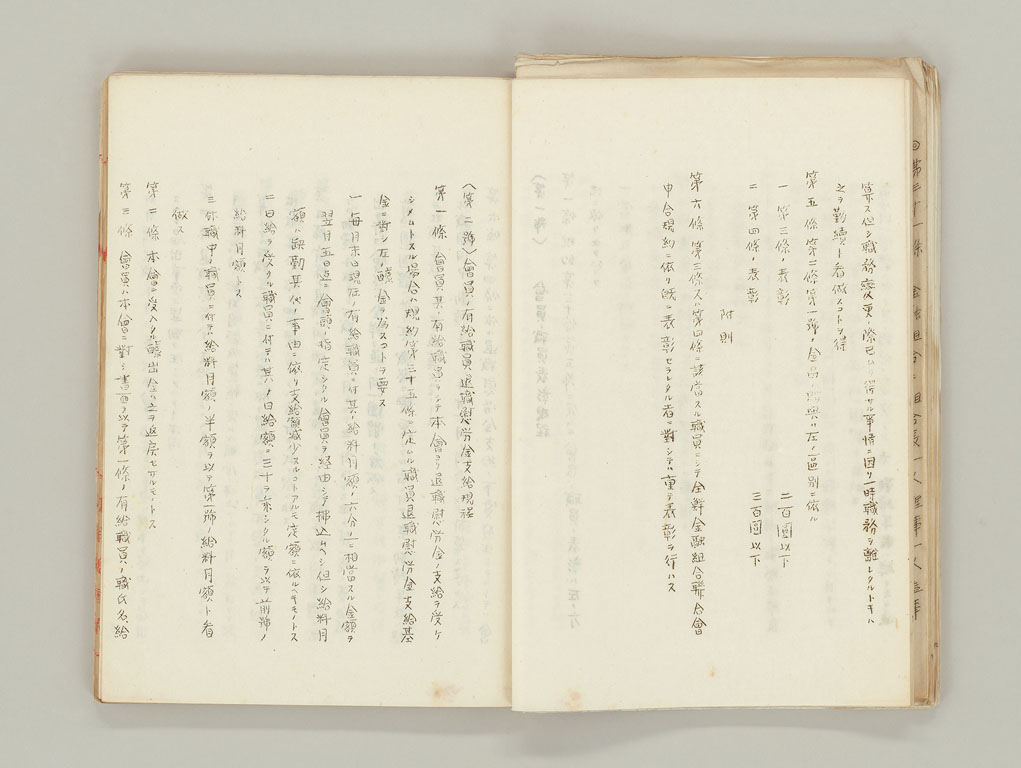 算ス但シ職務変更ノ際已ムヲ得サル事情ニ因リ一時職務ヲ離レタルトキハ
之ヲ勤続ノ者ト看做スコトヲ得
第五條 第二條第一號ノ金品ノ賜與ハ左ノ區別ニ依ル
一 第三條ノ表彰 二百圓以下
二 第四條ノ表彰 三百圓以下
附則
第六條 第三條又ハ第四條ニ該當スル職員ニシテ全鮮金融組合聯合會
申合規約ニ依リ既ニ表彰セラレタル者ニ對シテハ重テ表彰ヲ行ハス
(第二號)會員ノ有給職員退職慰労金支給規程
第一條 會員其ノ有給職員ヲシテ本會ヨリ退職慰労金ノ支給ヲ受ケ
シメムトスル場合ハ規約第二十五條ニ定ムル職員退職慰労金支給基
金ニ對シ左ノ醵金ヲ為スコトヲ要ス
一 毎月末日現在ノ有給職員ニ付其ノ給料月額ノ六分ノ一ニ相當スル金額ヲ
翌月五日迄ニ會長ノ指定シタル會員ヲ経由シテ拂込ムヘシ但シ給料月
額ハ缺勤其ノ他ノ事由ニ依リ支給額減少スルコトアルモ定額ニ依ルヘキモノトス
二 日給ヲ受クル職員ニ付テハ其ノ日給額ニ三十ヲ乗シタル額ヲ以テ前號ノ
給料月額トス
三 休職中ノ職員ニ付テハ給料月額ノ半額ヲ以テ第一號給料月額ト看
做ス
第二條 本會ノ受入レタル醵出金ハ之ヲ返戻セサルモノトス
第三條 會員ハ本會ニ對シ書面ヲ以テ第一條ノ有給職員ノ職氏名、給